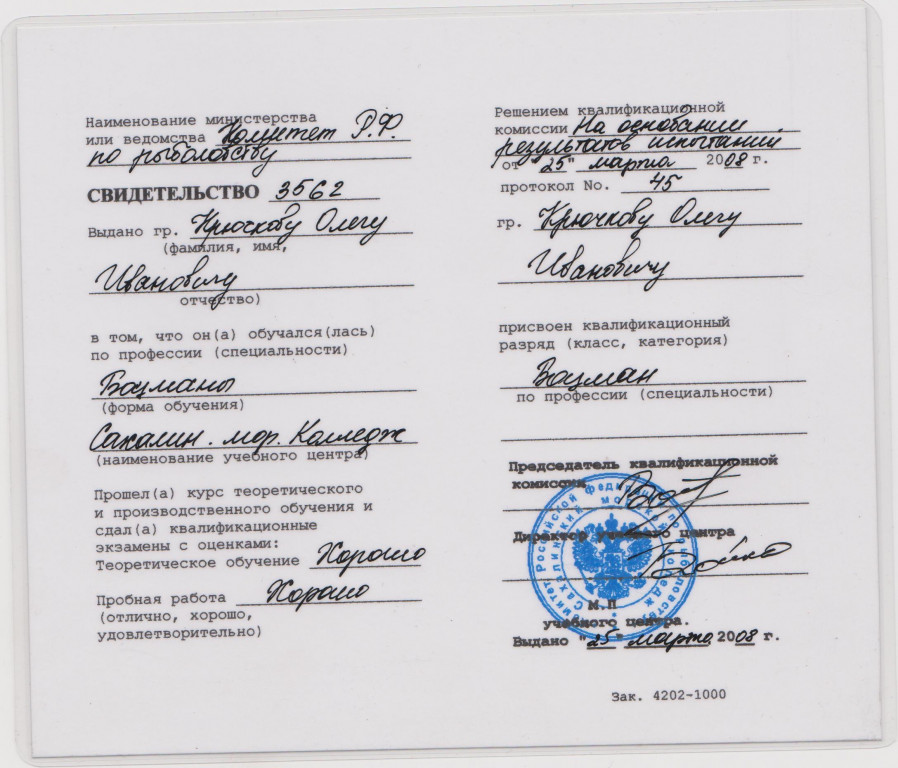 Наименование министерства
или ведомства Комитет Р.Ф.
по рыболовству
СВИДЕТЕЛЬСТВО 3562
Выдано гр. Крючкову Олегу
(фамилия, имя,
Ивановичу
отчество)
в том, что он(а) обучался(лась)
по профессии (специальности)
Боцманы
(форма обучения)
Сахалин. мор. Колледж
(наименование учебного центра)
Прошел(а) курс теоретического
и производственного обучения и
сдал(а) квалификационные
экзамены с оценками:
Теоретическое обучение Хорошо
Пробная работа Хорошо
(отлично, хорошо,
удовлетворительно)
Решением квалификационной
комиссии На основании
результатов испытаний
от "25" марта 2008 г.
протокол No. 45
гр. Крючкову Олегу
Ивановичу
присвоен квалификационный
разряд (класс, категория)
Боцман
по профессии (специальности)
Председатель квалификационной
комиссии
Директор учебного центра
М.П
учебного центра.
Выдано "25" марта 2008 г.
Зак. 4202-1000